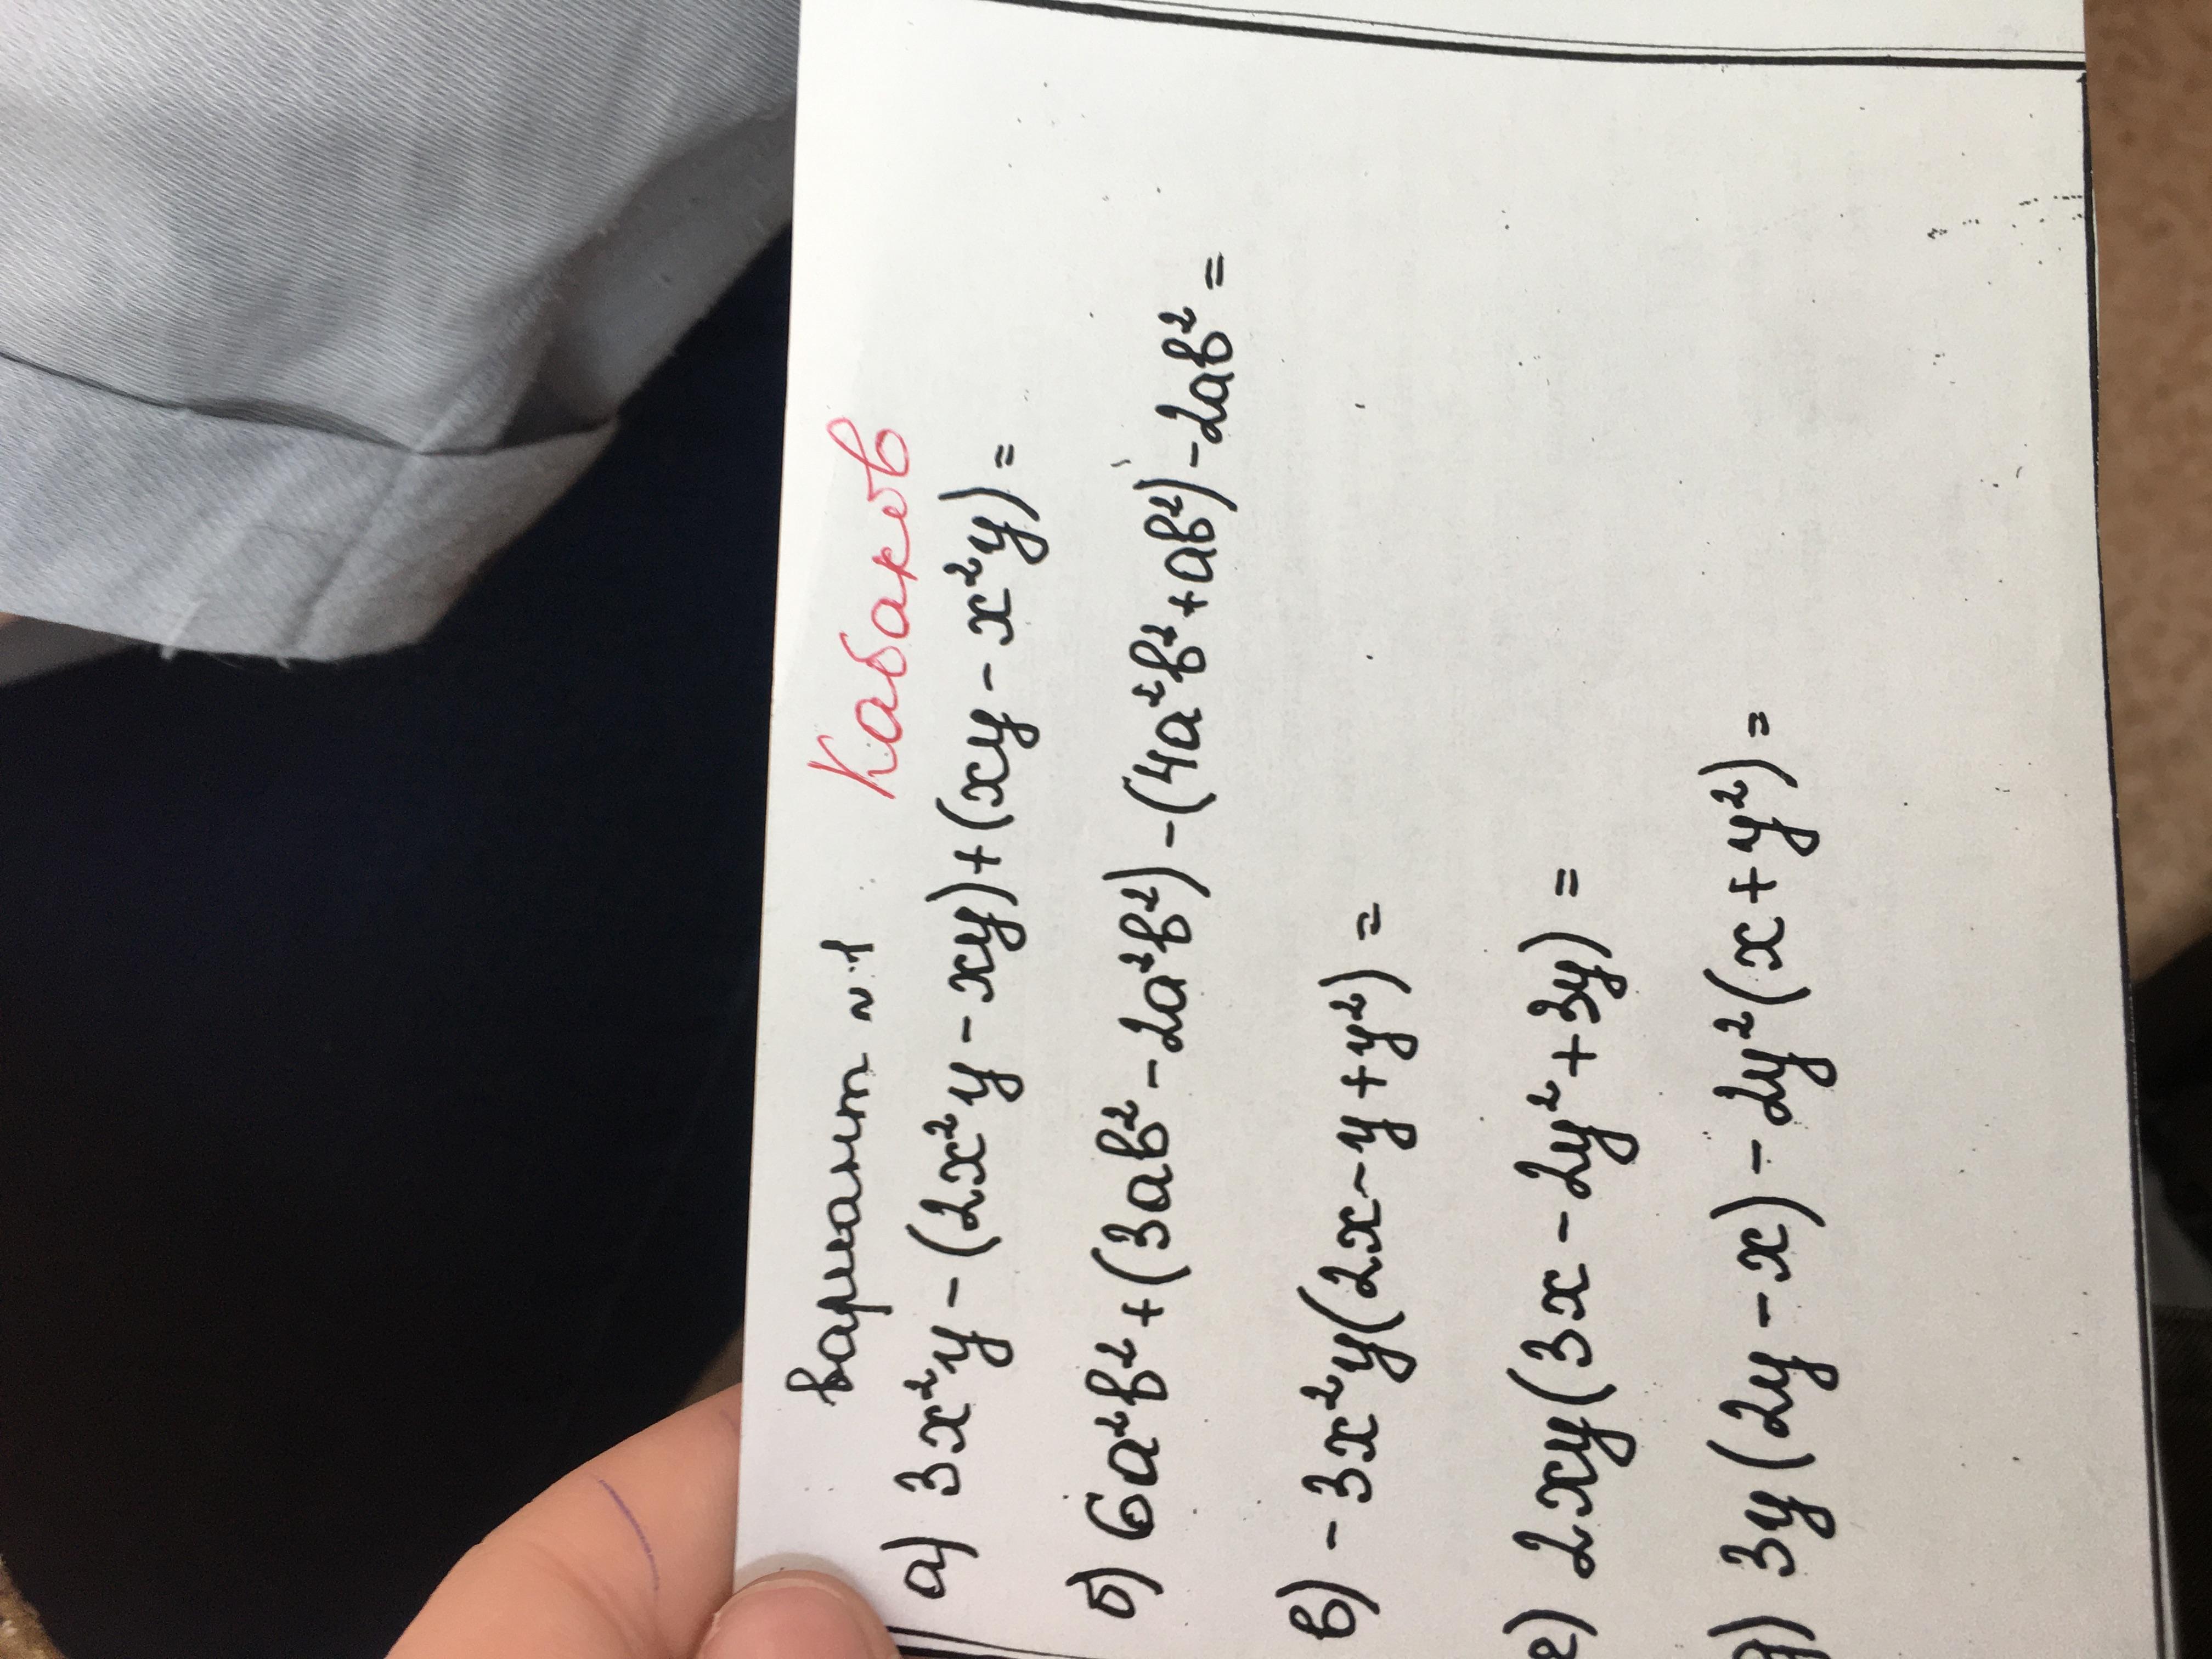 вариант №1 Кабаков
а) 3x²y - (2x²y - xy) + (xy - x²y) =
б) 6a²b² + (3ab² - 2a²b²) - (4a²b² + ab²) - 2ab² =
в) - 3x²y(2x - y + y²) =
г) 2xy(3x - 2y² + 3y) =
д) 3y(2y - x) - 2y²(x + y²) =